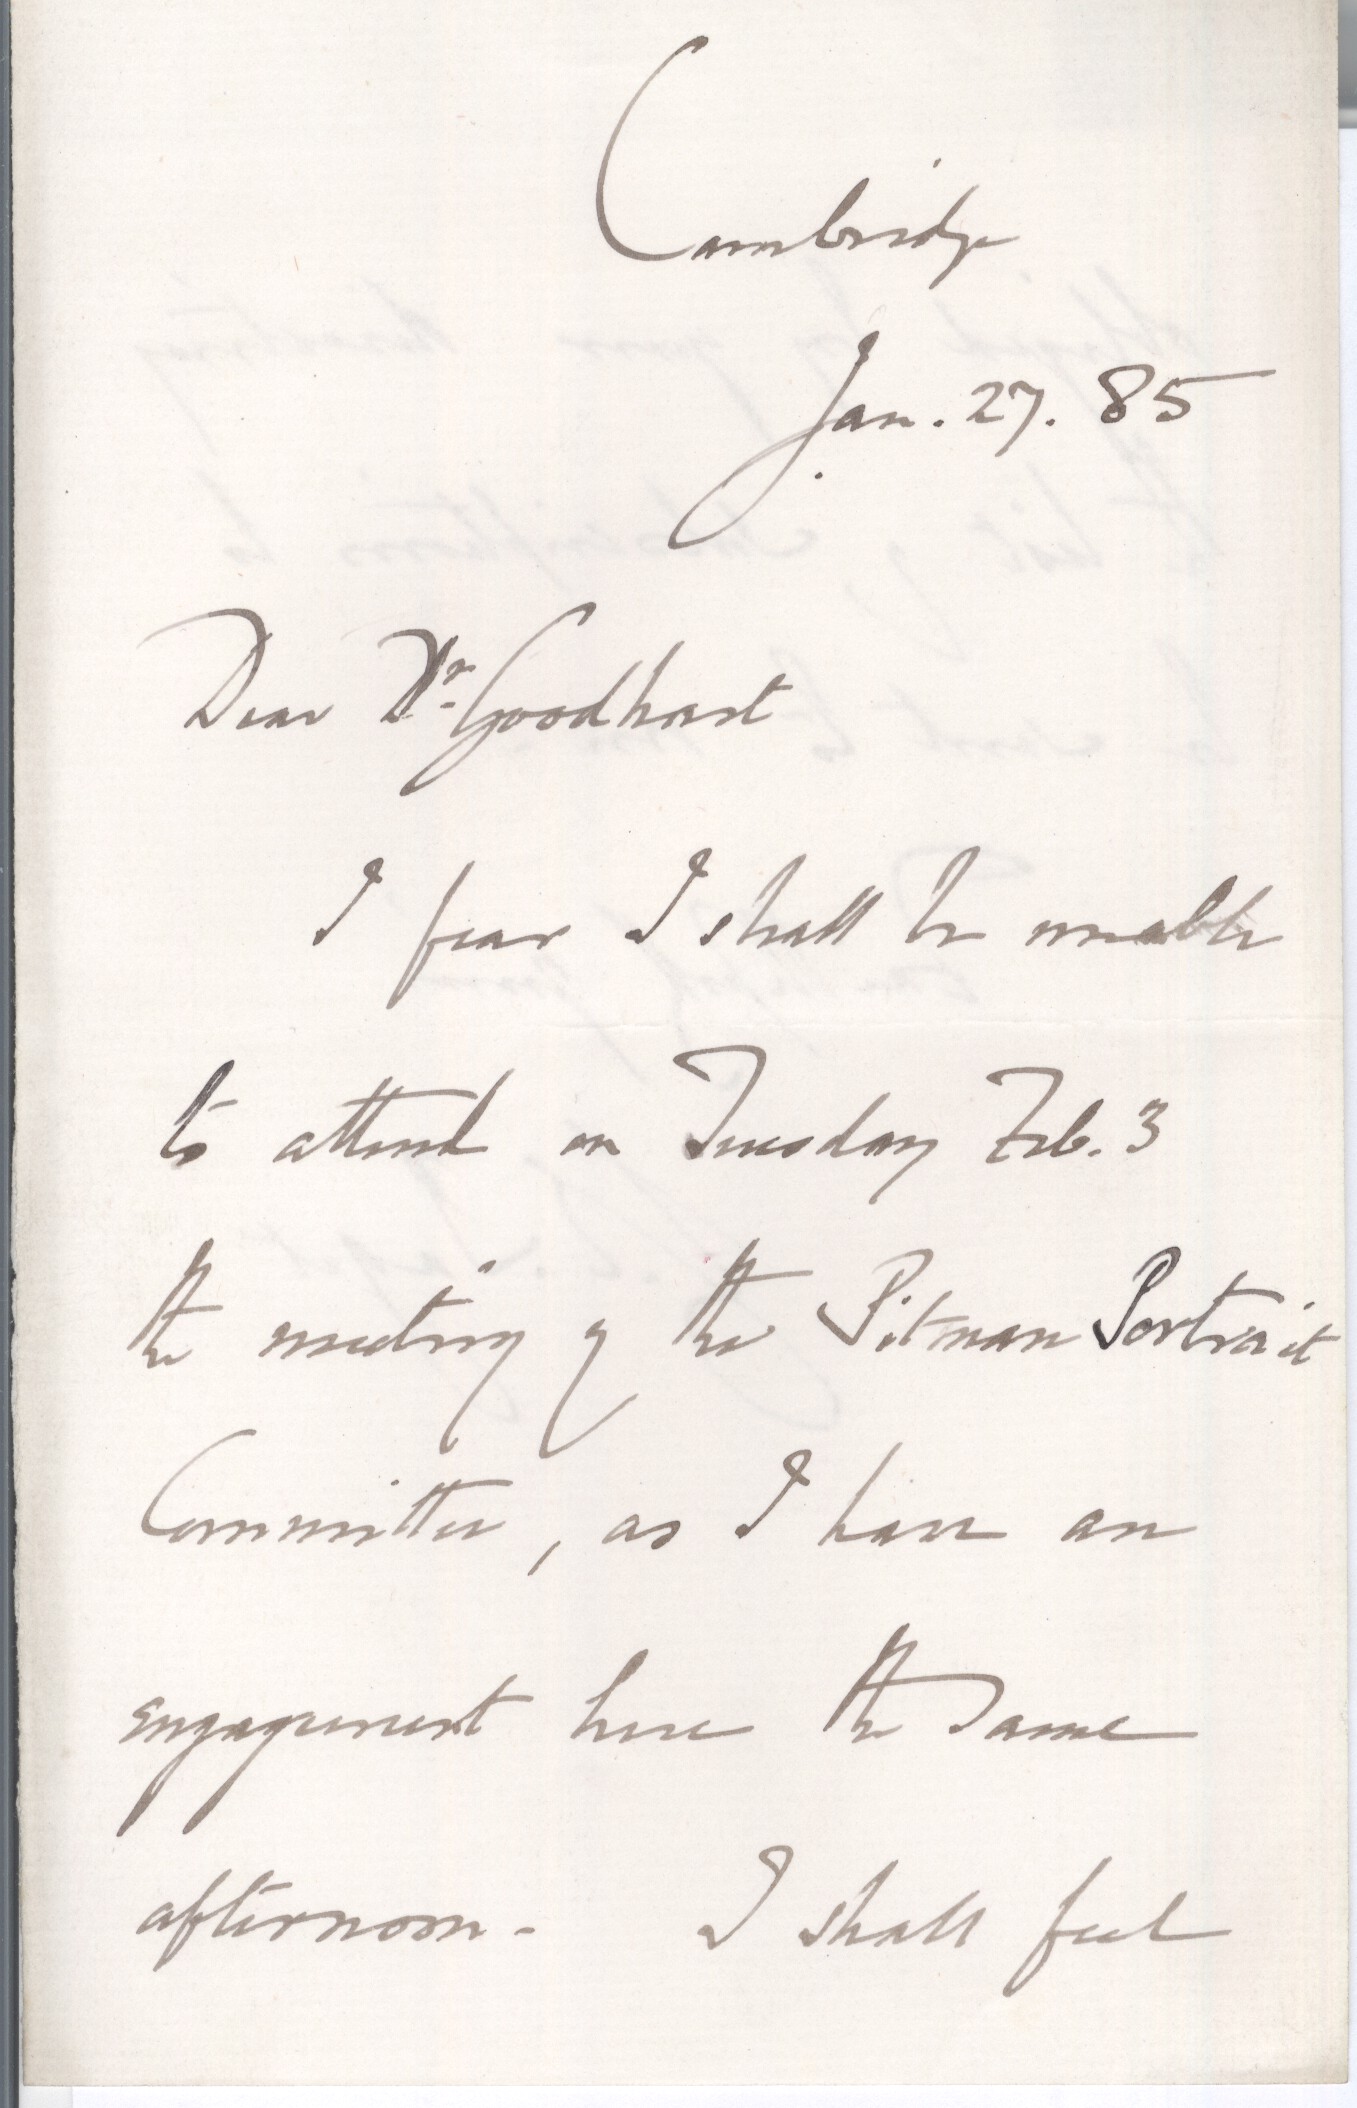 Cambridge
Jan. 27. 85
Dear Dr. Goodhart
I fear I shall be unable
to attend on Tuesday Feb. 3
the meeting of the Pitman Portrait
Committee, as I have an
engagement here the same
afternoon. I shall feel